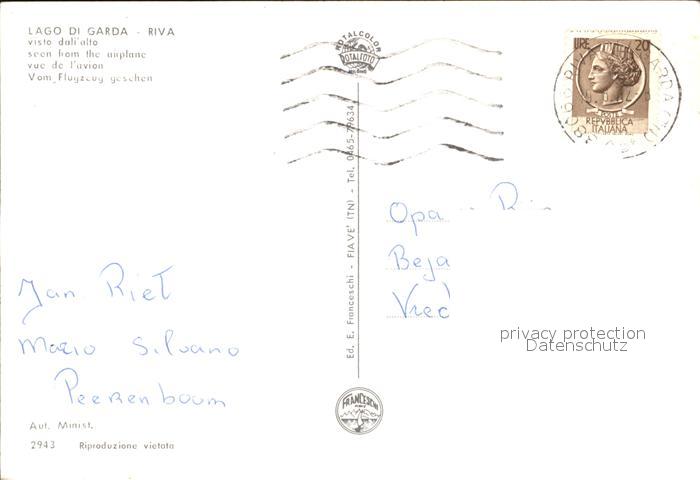 LAGO DI GARDA - RIVA
visto dall'alto
seen from the airplane
vue de l'avion
Vom Flugzeug gesehen
ROTALCOLOR
ROTALFOTO
LIRE 20
POSTE
REPVBBLICA
ITALIANA
Ed. E. Franceschi - FIAVE' (TN) - Tel. 0465-79634
Opa
Beja
privacy protection
Datenschutz
Jan Riet
Mario Silvano
Peerenboum
FRANCESCHI
Aut. Minist.
2943 Riproduzione vietata